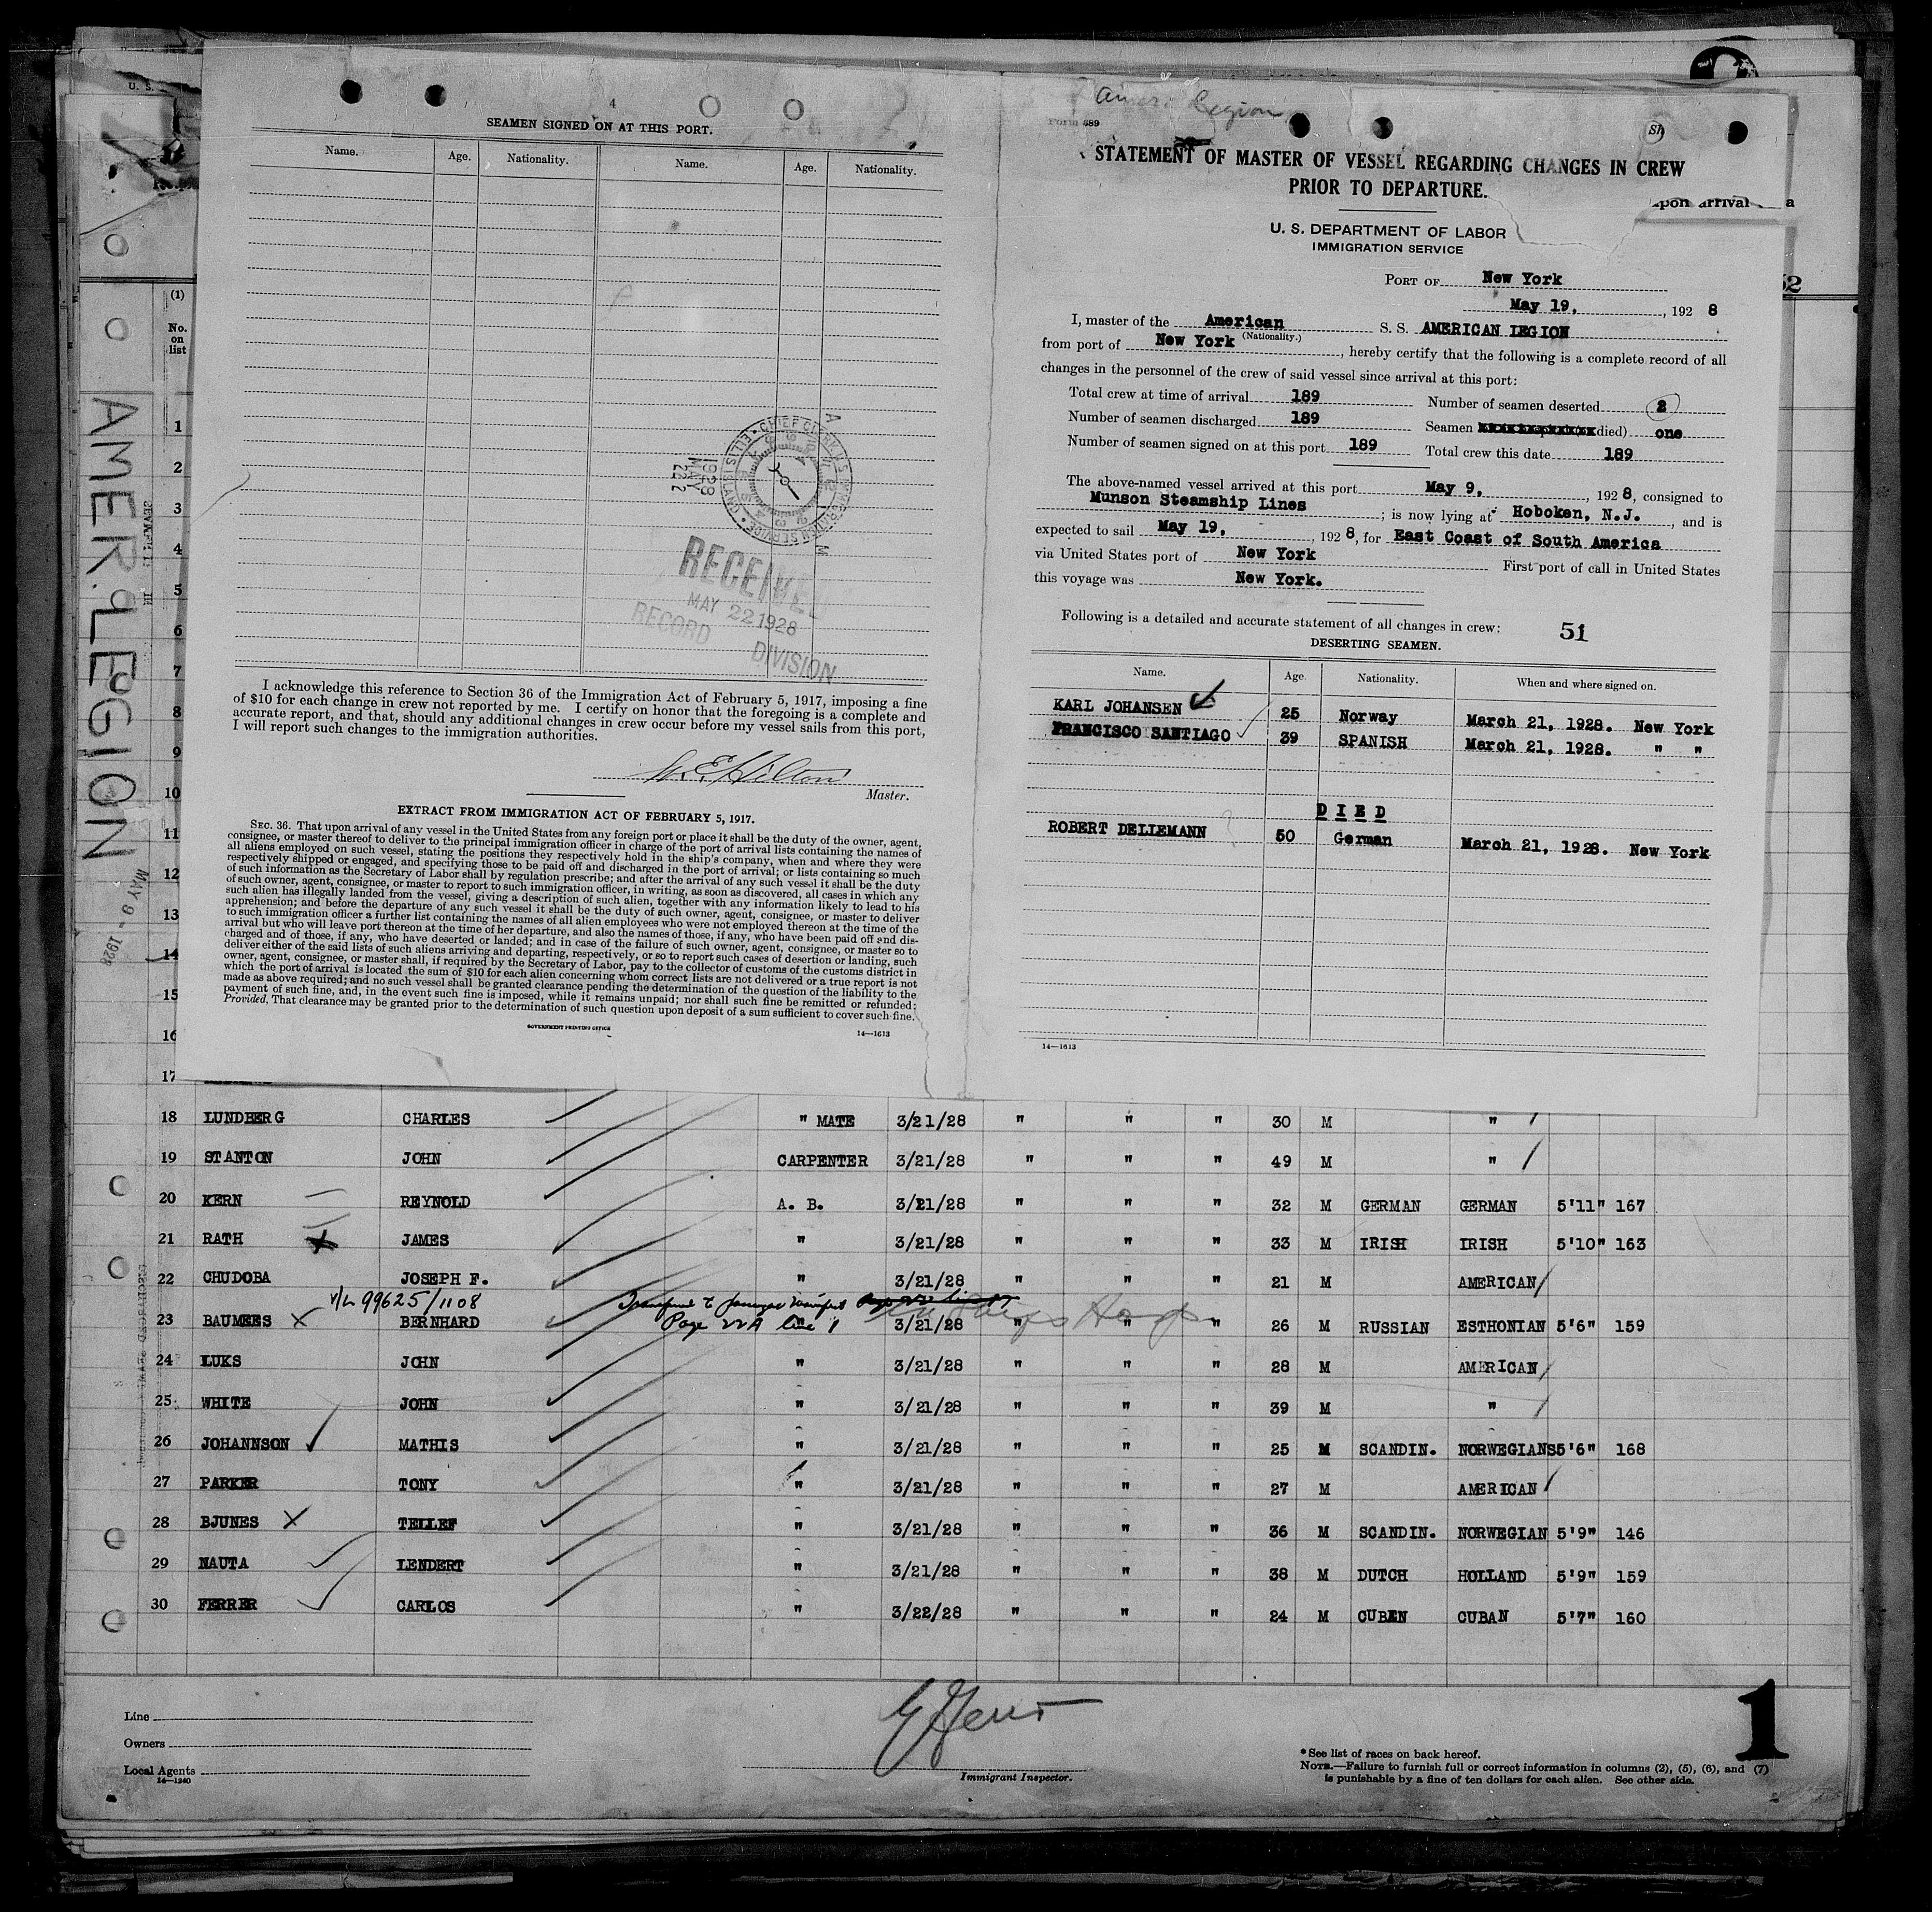 U. S.
(1)
No.
on
list
AMER. LEGION
MAY 9 - 1928
1
2
3
4
5
6
7
8
9
10
11
12
13
14
15
16
17
4
SEAMEN SIGNED ON AT THIS PORT.
Name. Age. Nationality. Name. Age. Nationality.
CHIEF CLERK'S
IMMIGRATION SERVICE
ELLIS ISLAND
1928
MAY
22
A M
RECEIVED
MAY 22 1928
RECORD DIVISION
I acknowledge this reference to Section 36 of the Immigration Act of February 5, 1917, imposing a fine
of $10 for each change in crew not reported by me. I certify on honor that the foregoing is a complete and
accurate report, and that, should any additional changes in crew occur before my vessel sails from this port,
I will report such changes to the immigration authorities.
Hilton
Master.
EXTRACT FROM IMMIGRATION ACT OF FEBRUARY 5, 1917.
SEC. 36. That upon arrival of any vessel in the United States from any foreign port or place it shall be the duty of the owner, agent,
consignee, or master thereof to deliver to the principal immigration officer in charge of the port of arrival lists containing the names of
all aliens employed on such vessel, stating the positions they respectively hold in the ship's company, when and where they were
respectively shipped or engaged, and specifying those to be paid off and discharged in the port of arrival; or lists containing so much
of such information as the Secretary of Labor shall by regulation prescribe; and after the arrival of any such vessel it shall be the duty
of such owner, agent, consignee, or master to report to such immigration officer, in writing, as soon as discovered, all cases in which any
such alien has illegally landed from the vessel, giving a description of such alien, together with any information likely to lead to his
apprehension; and before the departure of any such vessel it shall be the duty of such owner, agent, consignee, or master to deliver
to such immigration officer a further list containing the names of all alien employees who were not employed thereon at the time of the
arrival but who will leave port thereon at the time of her departure, and also the names of those, if any, who have been paid off and dis-
charged and of those, if any, who have deserted or landed; and in case of the failure of such owner, agent, consignee, or master so to
deliver either of the said lists of such aliens arriving and departing, respectively, or so to report such cases of desertion or landing, such
owner, agent, consignee, or master shall, if required by the Secretary of Labor, pay to the collector of customs of the customs district in
which the port of arrival is located the sum of $10 for each alien concerning whom correct lists are not delivered or a true report is not
made as above required; and no such vessel shall be granted clearance pending the determination of the question of the liability to the
payment of such fine, and, in the event such fine is imposed, while it remains unpaid; nor shall such fine be remitted or refunded:
Provided, That clearance may be granted prior to the determination of such question upon deposit of a sum sufficient to cover such fine.
GOVERNMENT PRINTING OFFICE 14—1613
Amer. Legion
Form 689
STATEMENT OF MASTER OF VESSEL REGARDING CHANGES IN CREW
PRIOR TO DEPARTURE.
upon arrival
U. S. DEPARTMENT OF LABOR
IMMIGRATION SERVICE
PORT OF New York
May 19, , 192 8
I, master of the American S. S. AMERICAN LEGION
(Nationality.)
from port of New York , hereby certify that the following is a complete record of all
changes in the personnel of the crew of said vessel since arrival at this port:
Total crew at time of arrival 189 Number of seamen deserted 2
Number of seamen discharged 189 Seamen died) one
Number of seamen signed on at this port 189 Total crew this date 189
The above-named vessel arrived at this port May 9, , 192 8, consigned to
Munson Steamship Lines ; is now lying at Hoboken, N.J. , and is
expected to sail May 19, , 192 8, for East Coast of South America
via United States port of New York First port of call in United States
this voyage was New York.
Following is a detailed and accurate statement of all changes in crew: 51
DESERTING SEAMEN.
Name. Age. Nationality. When and where signed on.
KARL JOHANSEN 25 Norway March 21, 1928. New York
FRANCISCO SANTIAGO 39 SPANISH March 21, 1928. " "
DIED
ROBERT DELLEMANN ? 50 German March 21, 1928. New York
14—1613
18 LUNDBERG CHARLES " MATE 3/21/28 " " " 30 M "
19 STANTON JOHN CARPENTER 3/21/28 " " " 49 M "
20 KERN REYNOLD A. B. 3/21/28 " " " 32 M GERMAN GERMAN 5'11" 167
21 RATH JAMES " 3/21/28 " " " 33 M IRISH IRISH 5'10" 163
22 CHUDOBA JOSEPH F. " 3/21/28 " " " 21 M AMERICAN
V/L 99625/1108 Transferred to passenger manifest
Page 22A line 1
23 BAUMEES X BERNHARD " 3/21/28 " " " 26 M RUSSIAN ESTHONIAN 5'6" 159
24 LUKS JOHN " 3/21/28 " " " 28 M AMERICAN
25 WHITE JOHN " 3/21/28 " " " 39 M "
26 JOHANNSON MATHIS " 3/21/28 " " " 25 M SCANDIN. NORWEGIANS 5'6" 168
27 PARKER TONY " 3/21/28 " " " 27 M AMERICAN
28 BJUNES X TELLEF " 3/21/28 " " " 36 M SCANDIN. NORWEGIAN 5'9" 146
29 NAUTA LENDERT " 3/21/28 " " " 38 M DUTCH HOLLAND 5'9" 159
30 FERRER CARLOS " 3/22/28 " " " 24 M CUBEN CUBAN 5'7" 160
Line
Owners
Local Agents
14—1240
Immigrant Inspector.
* See list of races on back hereof.
NOTE.—Failure to furnish full or correct information in columns (2), (5), (6), and (7)
is punishable by a fine of ten dollars for each alien. See other side.
1